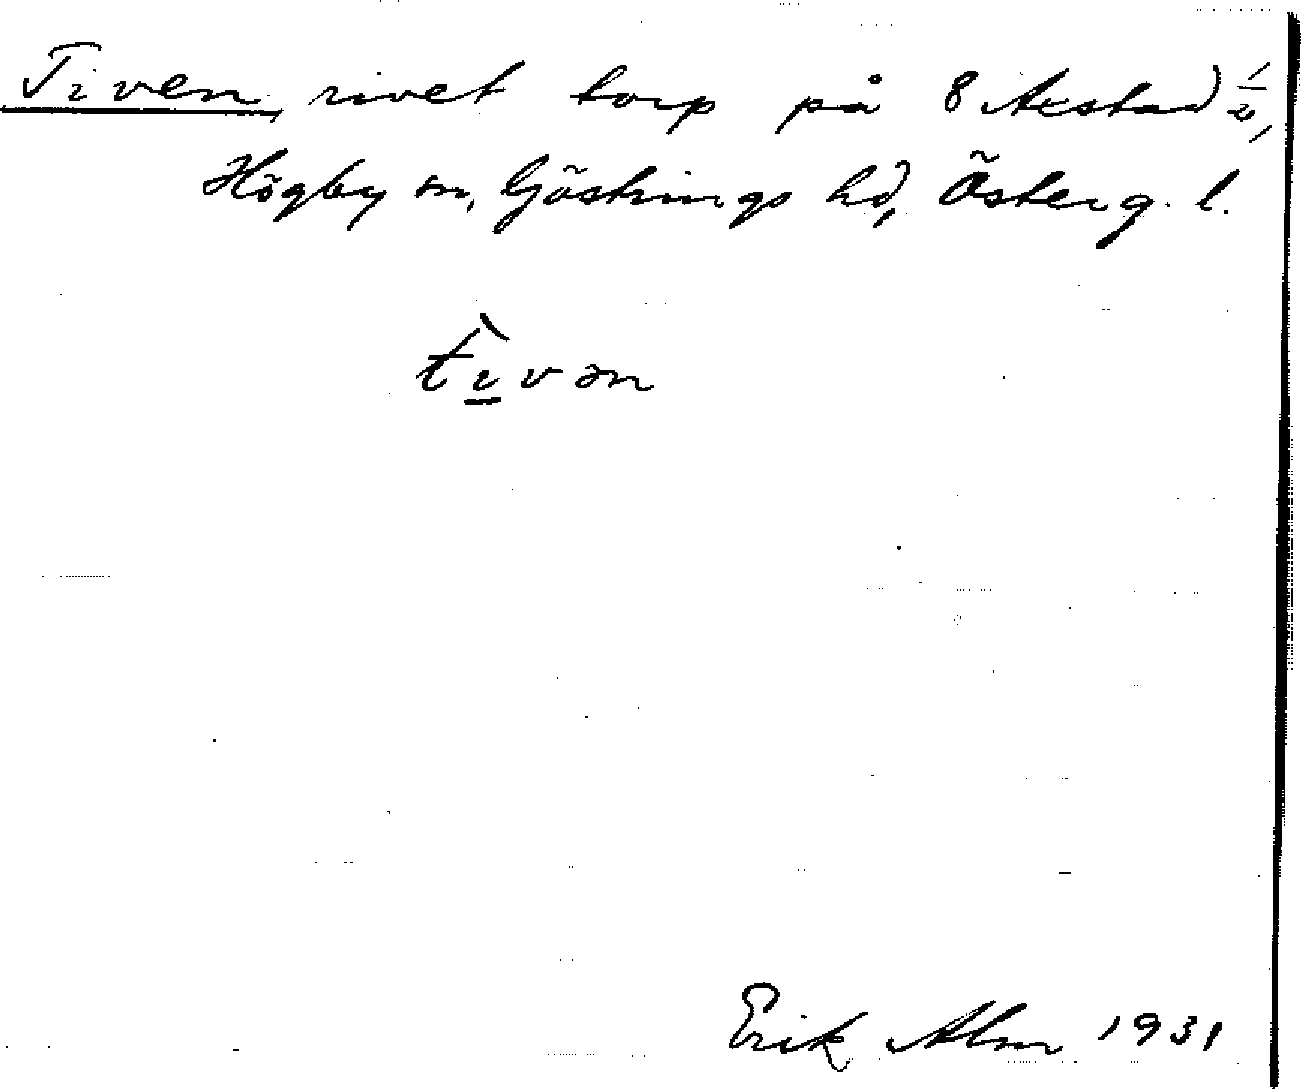 Tiven, rivet torp på 8 Axstad 1/2,
Högby sn, Göstrings hd, Österg. l.
tìvən
Erik Alm 1931